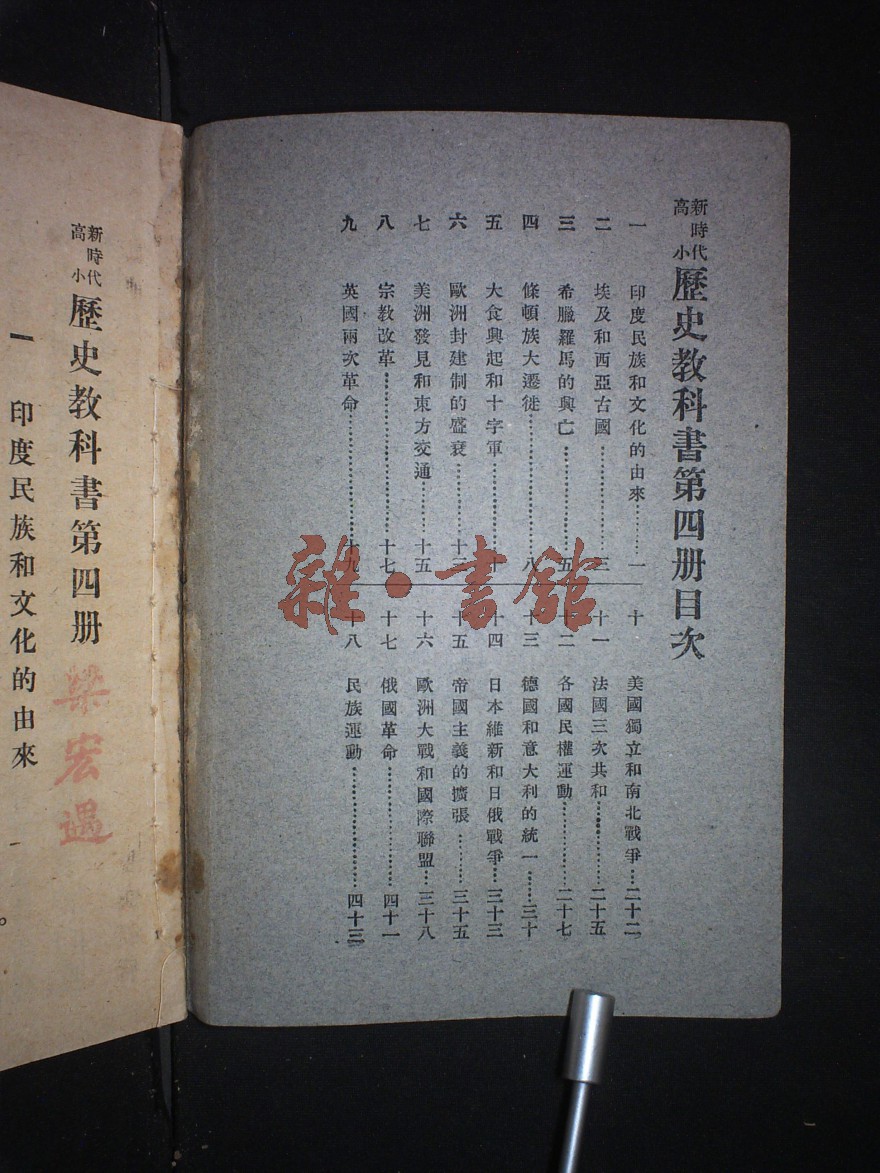 新時代
高小
歷史教科書第四册目次
一 印度民族和文化的由來………一
二 埃及和西亞古國………三
三 希臘羅馬的興亡………五
四 條頓族大遷徙………八
五 大食興起和十字軍………十
六 歐洲封建制的盛衰………十三
七 美洲發見和東方交通………十五
八 宗教改革………十七
九 英國兩次革命………十九
十 美國獨立和南北戰爭…二十二
十一 法國三次共和………二十五
十二 各國民權運動………二十七
十三 德國和意大利的統一…三十
十四 日本維新和日俄戰爭…三十三
十五 帝國主義的擴張………三十五
十六 歐洲大戰和國際聯盟…三十八
十七 俄國革命………四十一
十八 民族運動………四十三
雜·書館
新時代
高小
歷史教科書第四册
梁宏遇
一 印度民族和文化的由來